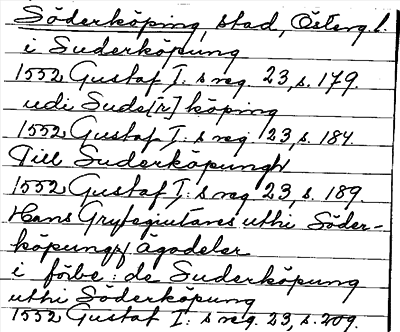 Söderköping, stad, Österg l.
i Suderköpung
1552 Gustaf I: s reg. 23, s. 179.
udi Sude[r]köping
1552 Gustaf I: s reg. 23, s. 184.
Till Suderköpungh
1552 Gustaf I: s reg 23, s. 189.
Hans uthi Söder-
köpungx ägodeler
i förbe: de Suderköpung
uthi Söderköpung
1552 Gustaf I: s reg. 23, s. 209.